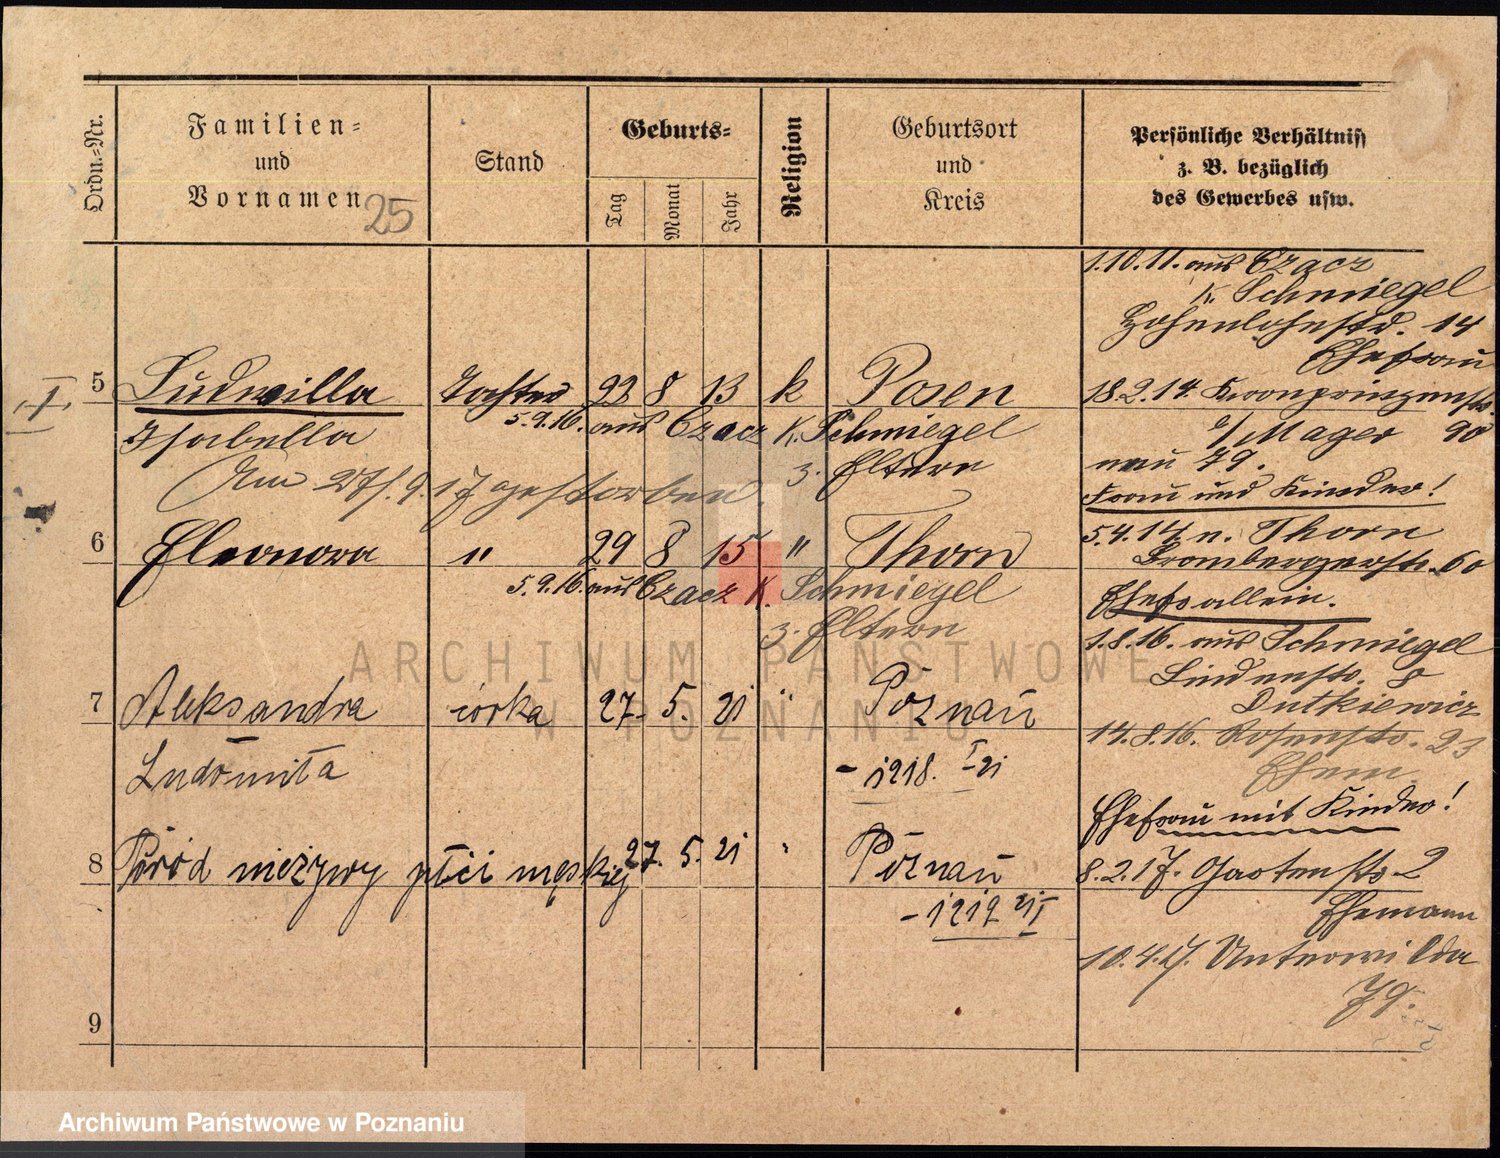 Ordn.-Nr.
Familien-
und
Vornamen
25
Stand
Geburts-
Tag
Monat
Jahr
Religion
Geburtsort
und
Kreis
Persönliche Verhältniss
z. B. bezüglich
des Gewerbes usw.
1.10.11. aus Czacz
K. Schmiegel
Hohenlohestr. 14
Ehefrau
I.
5 Ludwilla Tochter 22 8 13 k Posen
18.2.14. Kronprinzenstr.
5.9.16. aus Czacz K. Schmiegel
Isabella
b/ Mager 90
z. Eltern
neu 79.
Am 27/.9.17 gestorben.
Frau und Kinder!
6 Eleonora " 29 8 15 " Thorn
5.4.14 n. Thorn
Brombergerstr. 60
5.9.16. aus Czacz K. Schmiegel
z. Eltern
Ehefr allein.
1.8.16. aus Schmiegel
Lindenstr. 8
Dutkiewicz
7 Aleksandra córka 27. 5. 21 " Poznań
Ludomiła
- 1218. I 21
14.8.16. Rosenstr. 23
Ehem.
Ehefrau mit Kinder!
8 Poród nieżywy płci męskiej 27. 5. 21 " Poznań
- 1219 21 I
8.2.17. Gartenstr 2
Ehemann
10.4.17. Unterwilda
79.
9
ARCHIWUM PAŃSTWOWE
W POZNANIU
Archiwum Państwowe w Poznaniu